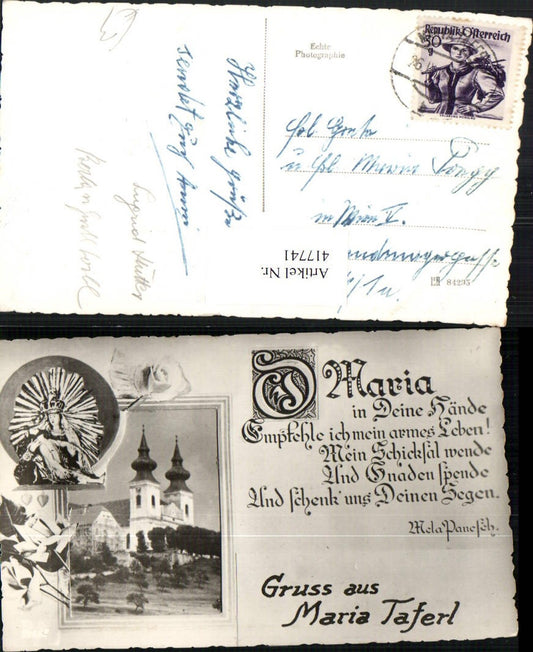 Echte
Photographie
Republik Österreich
30
g
Herzliche Grüße
sendet
Frl. Grete
u. Frl. Maria
in Wien V.
Artikel Nr.
417741
84295
O Maria
in Deine Hände
Empfehle ich mein armes Leben!
Mein Schicksal wende
Und Gnaden spende
Und schenk' uns Deinen Segen.
Mela Panesch.
Gruss aus
Maria Taferl